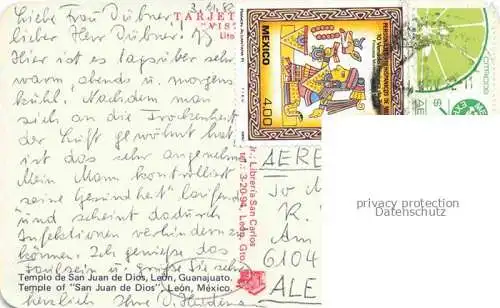 Liebe Frau Dübner,
lieber Herr Dübner,
Hier ist es tagsüber sehr
warm, abends u. morgens
kühl. Nachdem man
sich an die Trockenheit
der Luft gewöhnt hat,
ist das sehr angenehm.
Mein Mann kontrolliert
seine Gesundheit laufend
und scheint dadurch
Infektionen verhindern zu
können. Ich genieße das
Faulsein u. grüße Sie sehr
herzlich Ihre
Templo de San Juan de Dios, León, Guanajuato.
Temple of "San Juan de Dios", León, México.
TARJET
"VIS
Lito
MEXICO
4.00
Librería San Carlos
3-20-94, León, Gto.
AERE
R.
Am
6104
ALE
privacy protection
Datenschutz